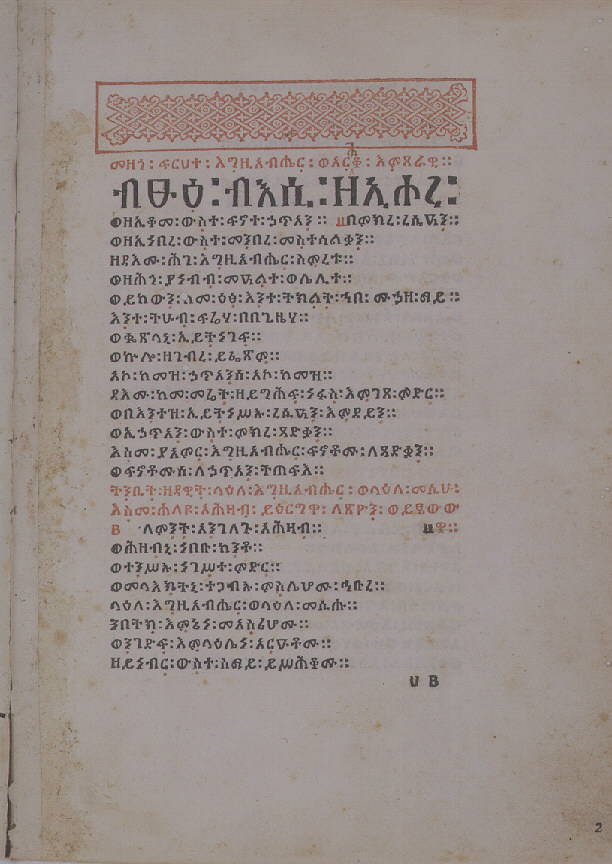 መዘገ፡ፍርሀተ፡እግዚአብሔር፡ወእርቆ፡እምጸራዊ።
ብፁዕ፡ብእሲ፡ዘኢሖረ፡
ወዘኢቆመ፡ውስተ፡ፍኖተ፡ኃጥአን። በምክረ፡ረሲዓን።
ወዘኢነበረ፡ውስተ፡መንበረ፡መስተሳልቃን።
ዘዳእሙ፡ሕገ፡እግዚአብሔር፡ስምረቱ።
ወዘሕጎ፡ያነብብ፡መዓልተ፡ወሌሊተ።
ወይከውን፡ከመ፡ዕፅ፡እንተ፡ትክልት፡ኀበ፡ሙኃዘ፡ማይ።
እንተ፡ትሁብ፡ፍሬሃ፡በበጊዜሃ።
ወቈጽላኒ፡ኢይትነገፍ።
ወኵሎ፡ዘገብረ፡ይፌጽም።
አኮ፡ከመዝ፡ኃጥአንሰ፡አኮ፡ከመዝ።
ዳእሙ፡ከመ፡መሬት፡ዘይግሕፍ፡ነፋስ፡እምገጸ፡ምድር።
ወበእንተዝ፡ኢይትነሥኡ፡ረሲዓን፡እምደይን።
ወኢኃጥአን፡ውስተ፡ምክረ፡ጻድቃን።
እስመ፡ያአምር፡እግዚአብሔር፡ፍኖቶሙ፡ለጻድቃን።
ወፍኖቶሙሰ፡ለኃጥአን፡ትጠፍእ።
ትንቢት፡ዘዳዊት፡ላዕለ፡እግዚአብሔር፡ወላዕለ፡መሲሁ፡
እስመ፡ሐለዩ፡አሕዛብ፡ይዕርግዋ፡ለጽዮን፡ወይፄውው
B ለምንት፡አንገለጉ፡አሕዛብ። ዋ።
ወሕዝብኒ፡ነበቡ፡ከንቶ።
ወተንሥኡ፡ነገሥተ፡ምድር።
ወመላእክትኒ፡ተጋብኡ፡ምስሌሆሙ፡ኅቡረ።
ላዕለ፡እግዚአብሔር፡ወላዕለ፡መሲሑ።
ንበትክ፡እምኔነ፡መአስሪሆሙ።
ወንገድፍ፡እምላዕሌነ፡አርዑቶሙ።
ዘይነብር፡ውስተ፡ሰማይ፡ይሥሕቆሙ።
ሀ B
2